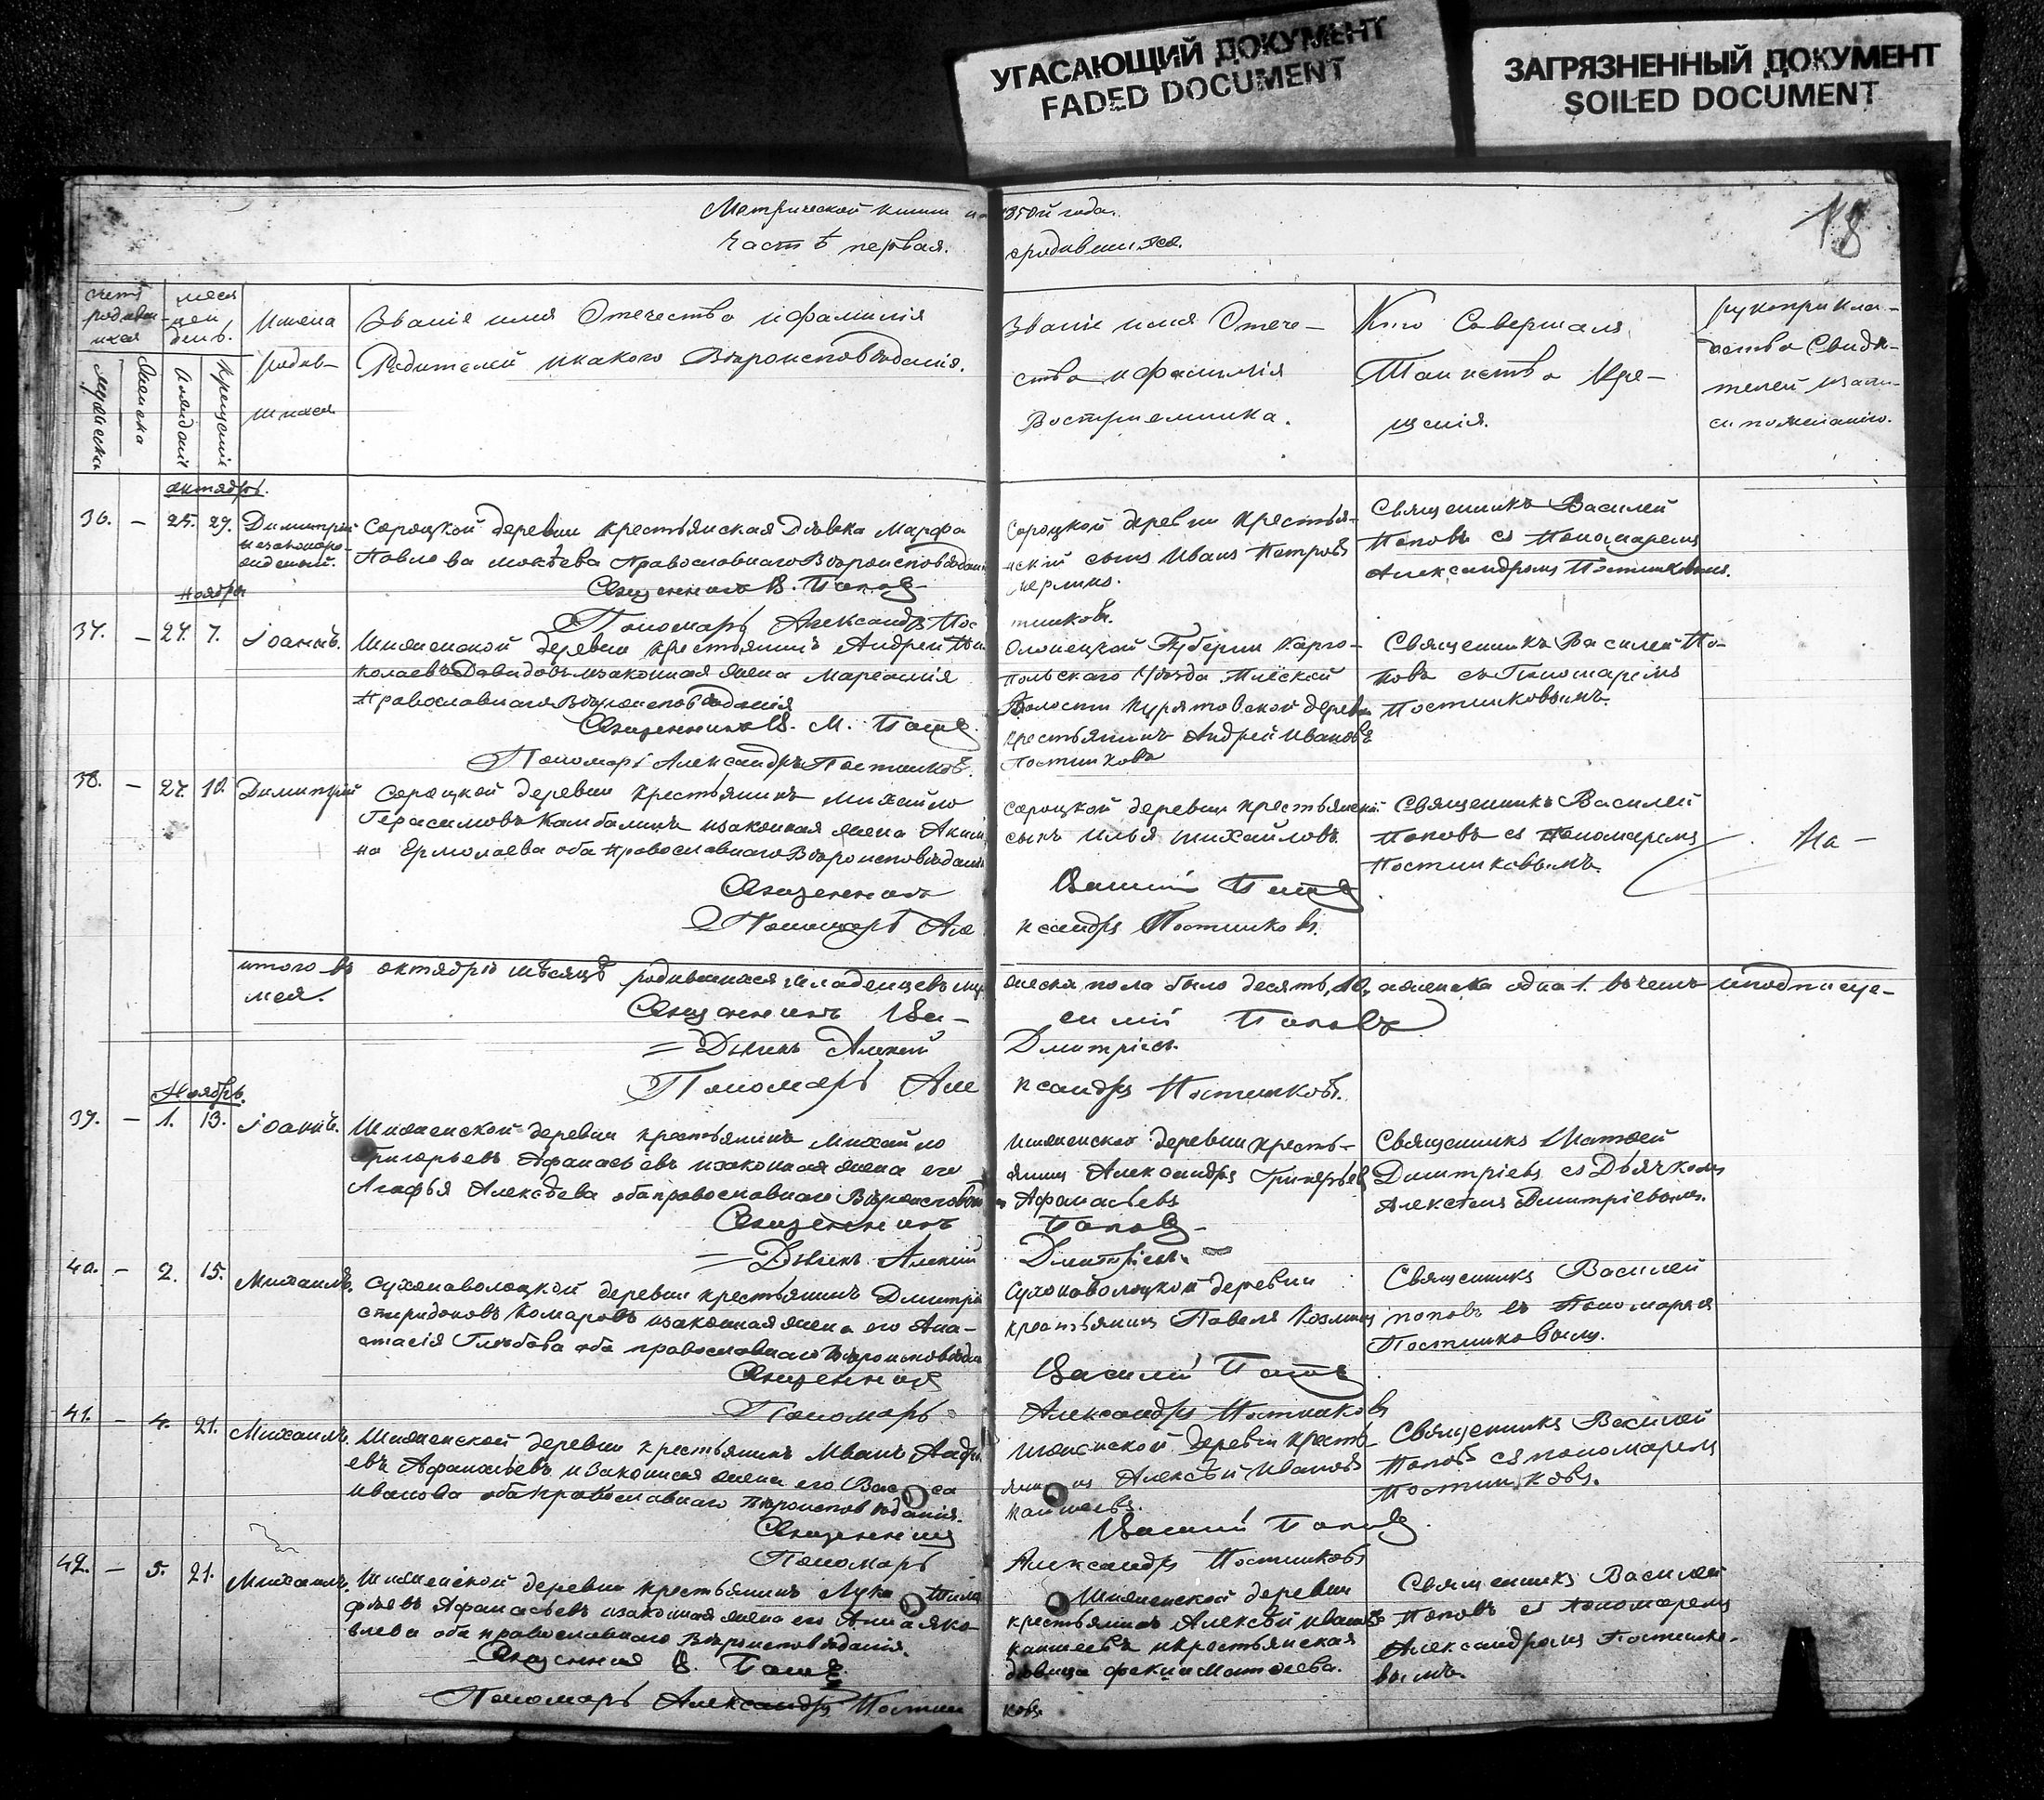 УГАСАЮЩИЙ ДОКУМЕНТ
FADED DOCUMENT
ЗАГРЯЗНЕННЫЙ ДОКУМЕНТ
SOILED DOCUMENT
18
Метрической книги на 1850й года.
Часть первая. о родившихся.
счетъ родившихся
мужеска
женска
месяцъ и день.
рожденія
крещенія
Имена родив-
шихся
Званіе имя Отчество и фамилія
Родителей и какого Вѣроисповѣданія.
Званіе имя Отече-
ство и фамилія
Воспріемника.
Кто Совершалъ
Таинство Кре-
щенія.
рукоприкла-
дство Свидѣ-
телей
по желанію.
октябрь.
36. - 25. 29. Димитрій
незаконоро-
жденный.
Сороцкой деревни крестьянская Дѣвка Марфа
Павлова Православнаго Вѣроисповѣданія
Священникъ В. Поповъ
Пономарь Александръ Пос
тниковъ.
Сороцкой деревни крестья-
нскій сынъ Иванъ Петровъ
Священникъ Василей
Поповъ съ Пономаремъ
Александромъ Постниковымъ.
Ноябрь
37. - 27. 7. Іоаннъ.
Шиженской деревни крестьянинъ Андрей Ни
колаевъ Давидовъ и законная жена
Православнаго Вѣроисповѣданія
Священникъ В. М. Поповъ.
Пономарь Александръ Постниковъ.
Олонецкой Губерни Карго-
польскаго Уѣзда
Волости деревни
крестьянинъ Андрей Ивановъ
Постниковъ
Священникъ Василей По-
повъ съ Пономаремъ
Постниковымъ.
38. - 27. 10. Димитрій
Сороцкой деревни крестьянинъ Михайло
Герасимовъ Камбалинъ и законная жена Акили
на Ермолаева оба Православнаго Вѣроисповѣданія
Священникъ
Василій Поповъ
Пономарь Але
ксандръ Постниковъ.
сороцкой деревни крестьянской
сынъ Илья Михайловъ
Священникъ Василей
Поповъ съ Пономаремъ
Постниковымъ.
На -
итого въ октябрѣ мѣсяцѣ родившихся младенцевъ муж
еска пола было десять, 10, а женска одна 1. въ чемъ и подписуе-
мся.
Священникъ Ва-
силій Поповъ
= Дьякъ Алексій
Дмитріевъ.
Пономарь Але
ксандръ Постниковъ.
Ноябрь.
39. - 1. 13. Іоаннъ.
Шиженской деревни крестьянинъ Михайло
Григорьевъ Афанасьевъ и законная жена его
Агафья Алексѣева оба православнаго Вѣроисповѣданія
Священникъ
Поповъ
= Дьякъ Алексій
Дмитріевъ.
Шиженской деревни кресть-
янинъ Александръ Григорьевъ
Афанасьевъ
Священникъ Матвей
Димитріевъ съ Дьячкомъ
Алексѣемъ Дмитріевымъ.
40. - 2. 15. Михаилъ.
Сухонаволоцкой деревни крестьянинъ Дмитрій
Спиридоновъ Комаровъ и законная жена его Ана-
стасія Глѣбова оба православнаго Вѣроисповѣданія
Священникъ
Василій Поповъ
Пономарь
Александръ Постниковъ
Сухонаволоцкой деревни
крестьянинъ Павелъ Козминъ
Священникъ Василей
поповъ съ Пономаремъ
Постниковымъ.
41. - 4. 21. Михаилъ.
Шиженской деревни крестьянинъ Иванъ Андре
евъ Афанасьевъ и Законная жена его Васса
Иванова оба православнаго Вѣроисповѣданія.
Священникъ
Василій Поповъ
Пономарь
Александръ Постниковъ
Шиженской деревни кресть-
янинъ Алексѣй Ивановъ
Священникъ Василей
Поповъ съ пономаремъ
Постниковъ.
42. - 5. 21. Михаилъ.
Шиженской деревни крестьянинъ Лука Тимо
феевъ Афанасьевъ и законная жена его Анна Яко-
влева оба православнаго Вѣроисповѣданія.
Священникъ В. Поповъ
Пономарь Александръ Постни
ковъ
Шиженской деревни
крестьянинъ Алексѣй Ивановъ
и крестьянская
дѣвица Фекла Матвеева.
Священникъ Василей
Поповъ съ пономаремъ
Александромъ Постнико-
вымъ.